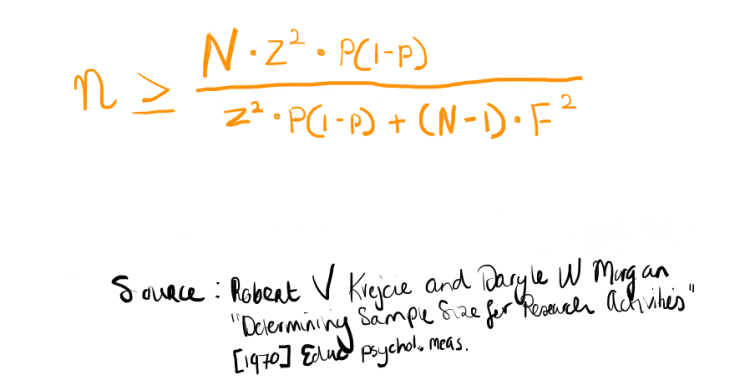 n ≥ N · Z² · P(1-P)
Z² · P(1-P) + (N-1) · F²
Source : Robert V Krejcie and Daryle W Morgan
"Determining Sample Size for Research Activities"
[1970] Educ psychol. meas.